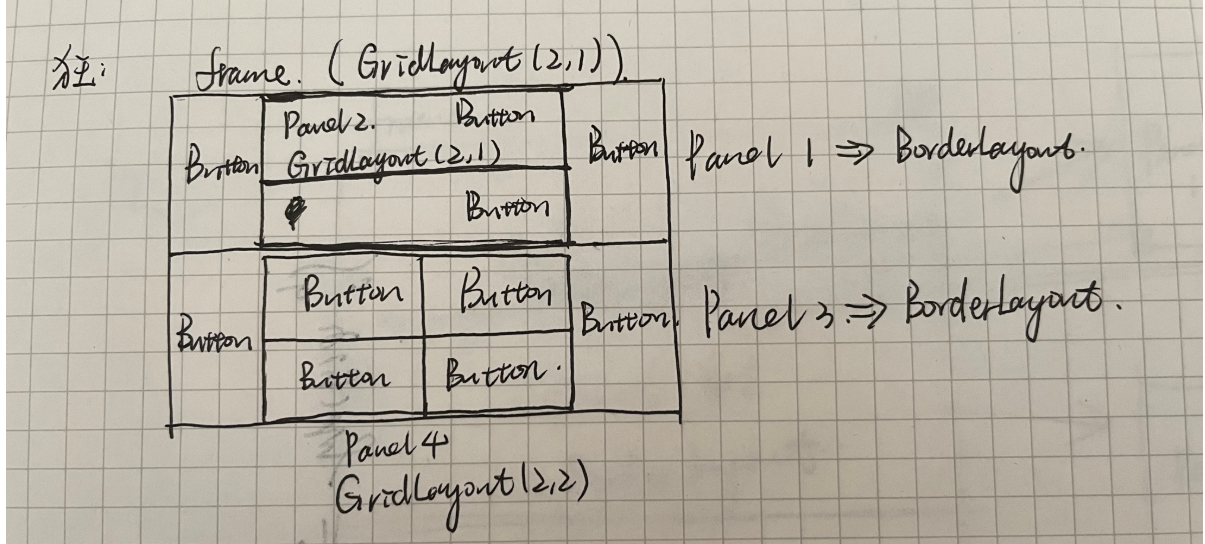 注:
frame. (GridLayout(2,1)).
Panel 2. Button
Button GridLayout(2,1) Button Panel 1 ⇒ BorderLayout.
Button
Button Button
Button Button Panel 3 ⇒ BorderLayout.
Button Button.
Panel 4
GridLayout(2,2)